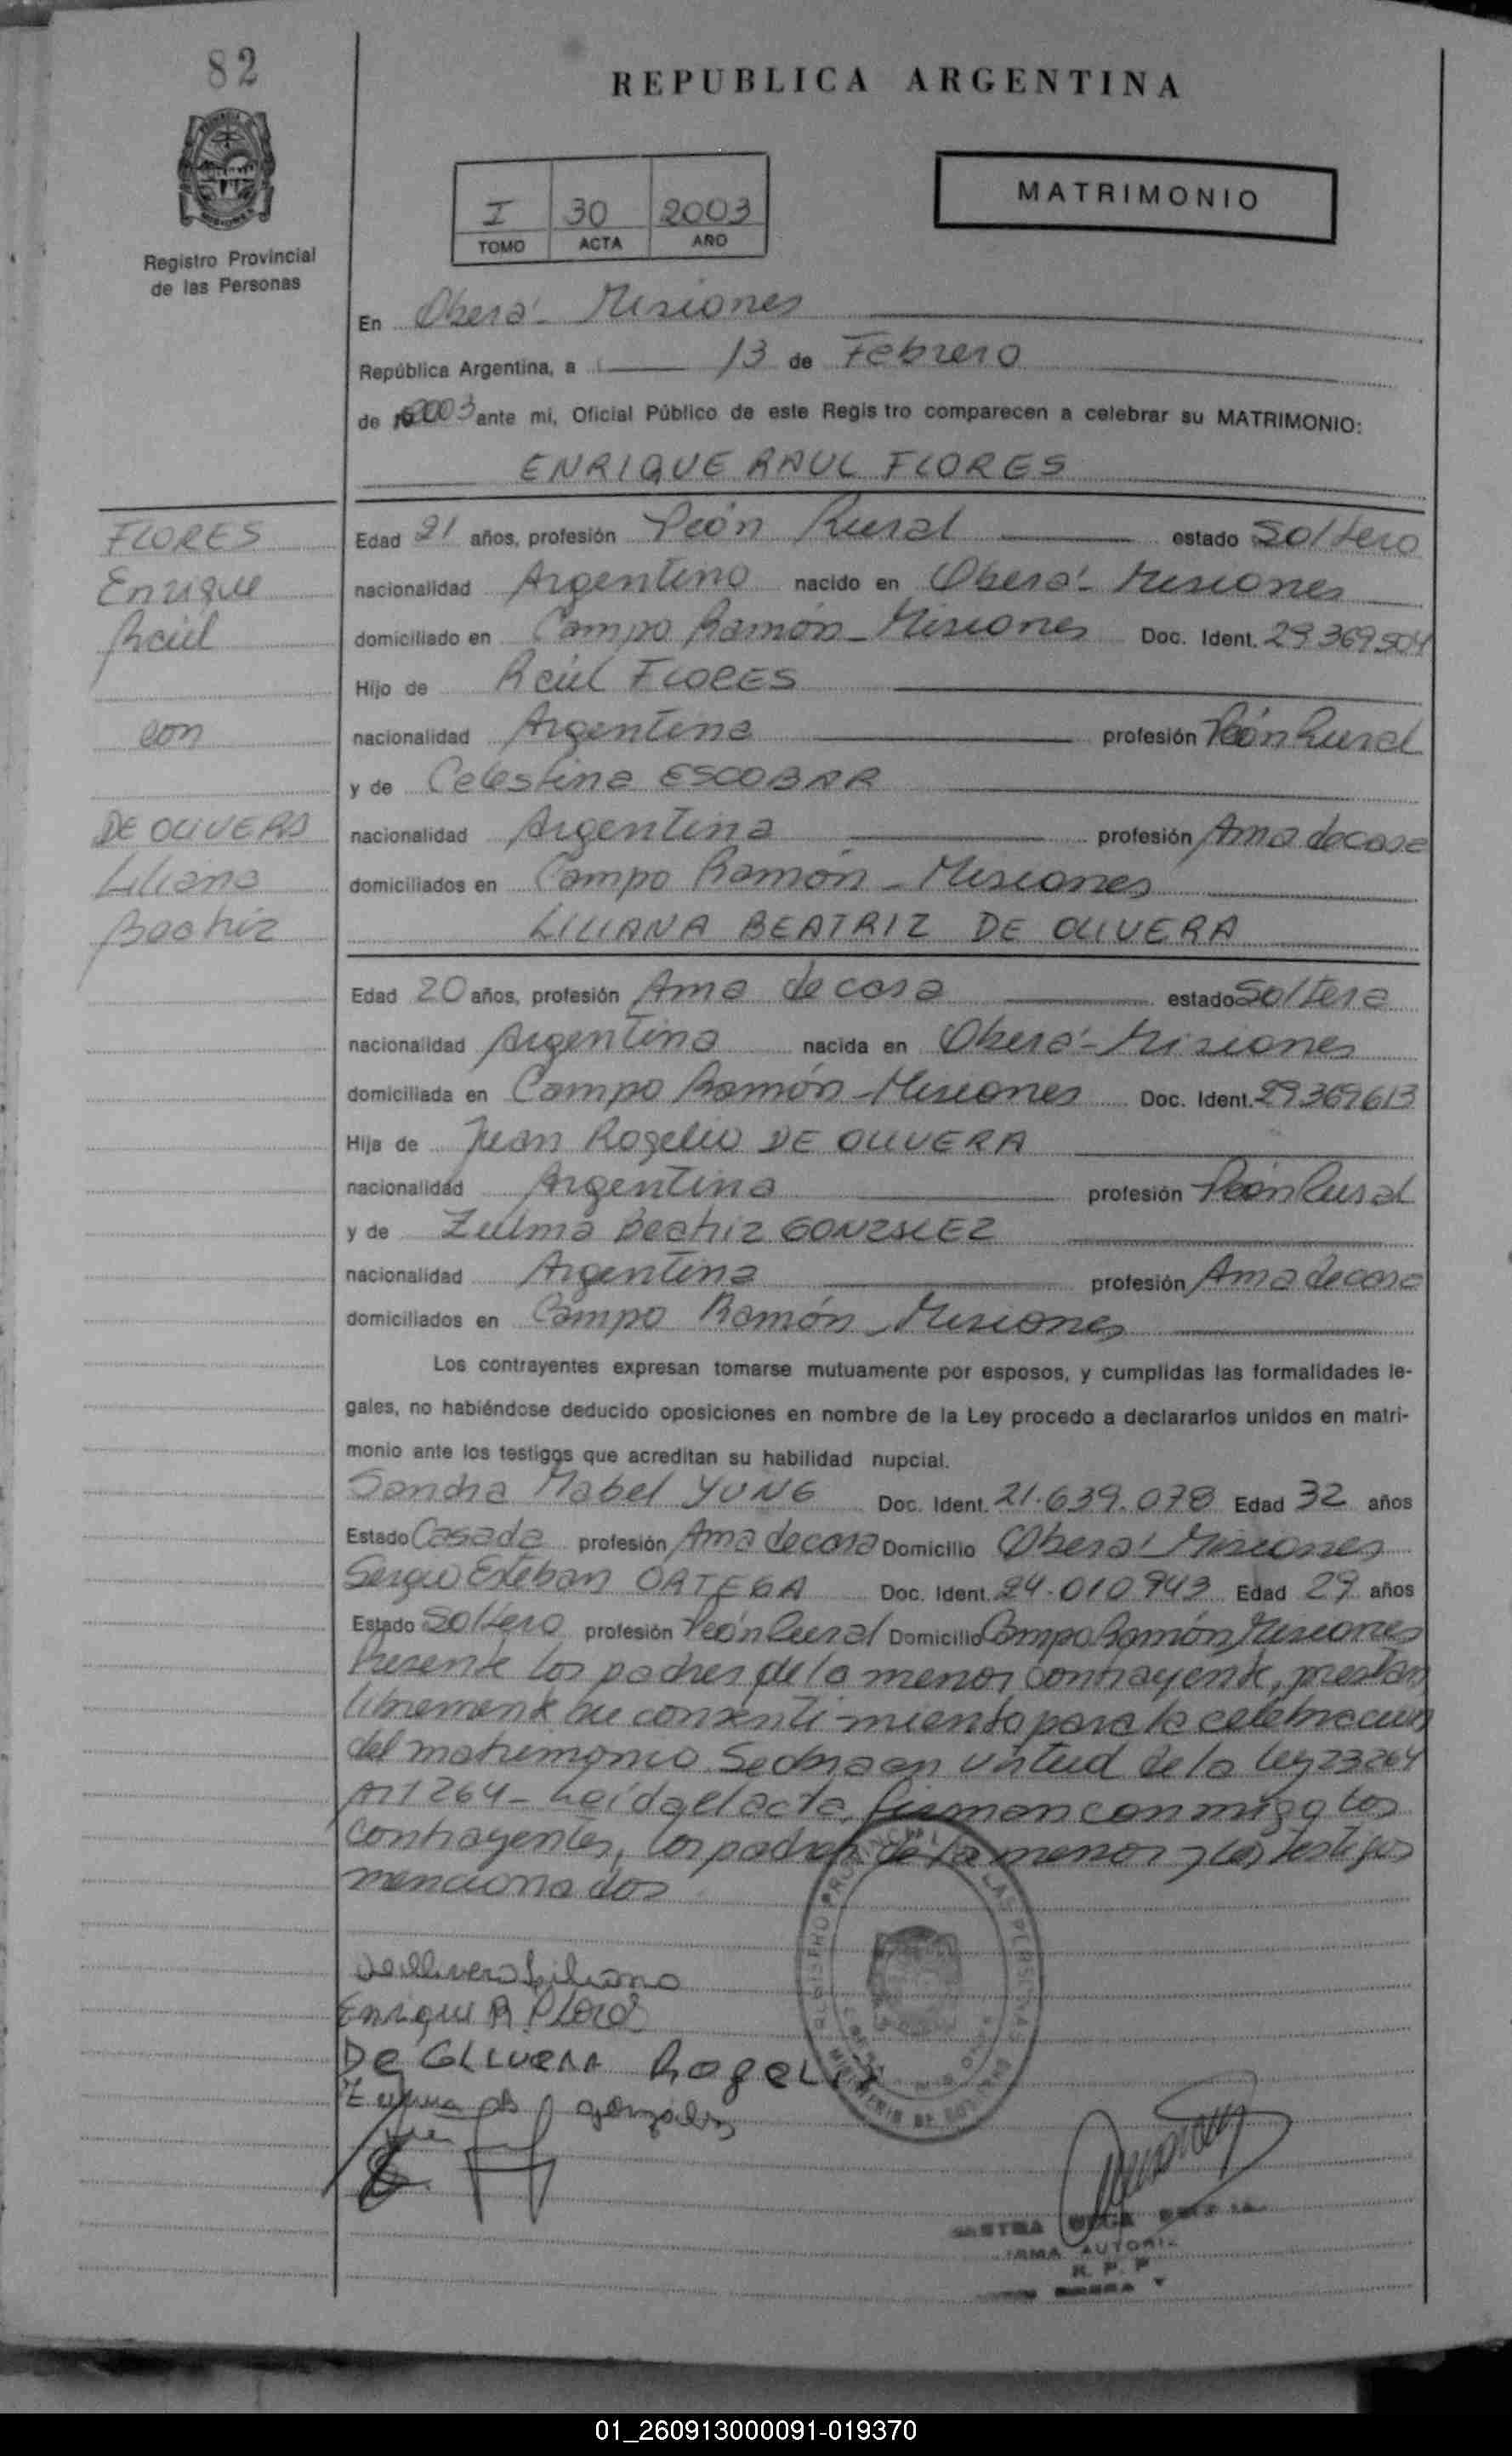 82
REPUBLICA ARGENTINA
Registro Provincial
de las Personas
I 30 2003
TOMO ACTA AÑO
MATRIMONIO
En Oberá - Misiones
República Argentina, a 13 de Febrero
de 2003 ante mi, Oficial Público de este Regis tro comparecen a celebrar su MATRIMONIO:
ENRIQUE RAUL FLORES
FLORES
Enrique
Raúl
con
DE OLIVERA
Liliana
Beatriz
Edad 21 años, profesión Peón Rural estado Soltero
nacionalidad Argentino nacido en Oberá - Misiones
domiciliado en Campo Ramón - Misiones Doc. Ident. 29.369.504
Hijo de Raúl FLORES
nacionalidad Argentina profesión Peón Rural
y de Celestina ESCOBAR
nacionalidad Argentina profesión Ama de casa
domiciliados en Campo Ramón - Misiones
LILIANA BEATRIZ DE OLIVERA
Edad 20 años, profesión Ama de casa estado Soltera
nacionalidad Argentina nacida en Oberá - Misiones
domiciliada en Campo Ramón - Misiones Doc. Ident. 29369613
Hija de Juan Rogelio DE OLIVERA
nacionalidad Argentina profesión Peón Rural
y de Zulma Beatriz GONZALEZ
nacionalidad Argentina profesión Ama de casa
domiciliados en Campo Ramón - Misiones
Los contrayentes expresan tomarse mutuamente por esposos, y cumplidas las formalidades le-
gales, no habiéndose deducido oposiciones en nombre de la Ley procedo a declararlos unidos en matri-
monio ante los testigos que acreditan su habilidad nupcial.
Sandra Mabel YUNG Doc. Ident. 21.639.078 Edad 32 años
Estado Casada profesión Ama de casa Domicilio Oberá - Misiones
Sergio Esteban ORTEGA Doc. Ident. 24.010.943 Edad 29 años
Estado Soltero profesión Peón Rural Domicilio Campo Ramón Misiones
Presente los padres de la menor contrayente, prestan
libremente su consentimiento para la celebracion
del matrimonio. Se obra en virtud de la Ley 23264
Art 264 - Leída el acta, firman conmigo los
contrayentes, los padres de la menor y los testigos
mencionados
De Olivera Liliana
Enrique R Flores
De OLIVERA Rogelio
Zulma B gonzalez
REGISTRO PROVINCIAL DE LAS PERSONAS
R. P. P
01_260913000091-019370